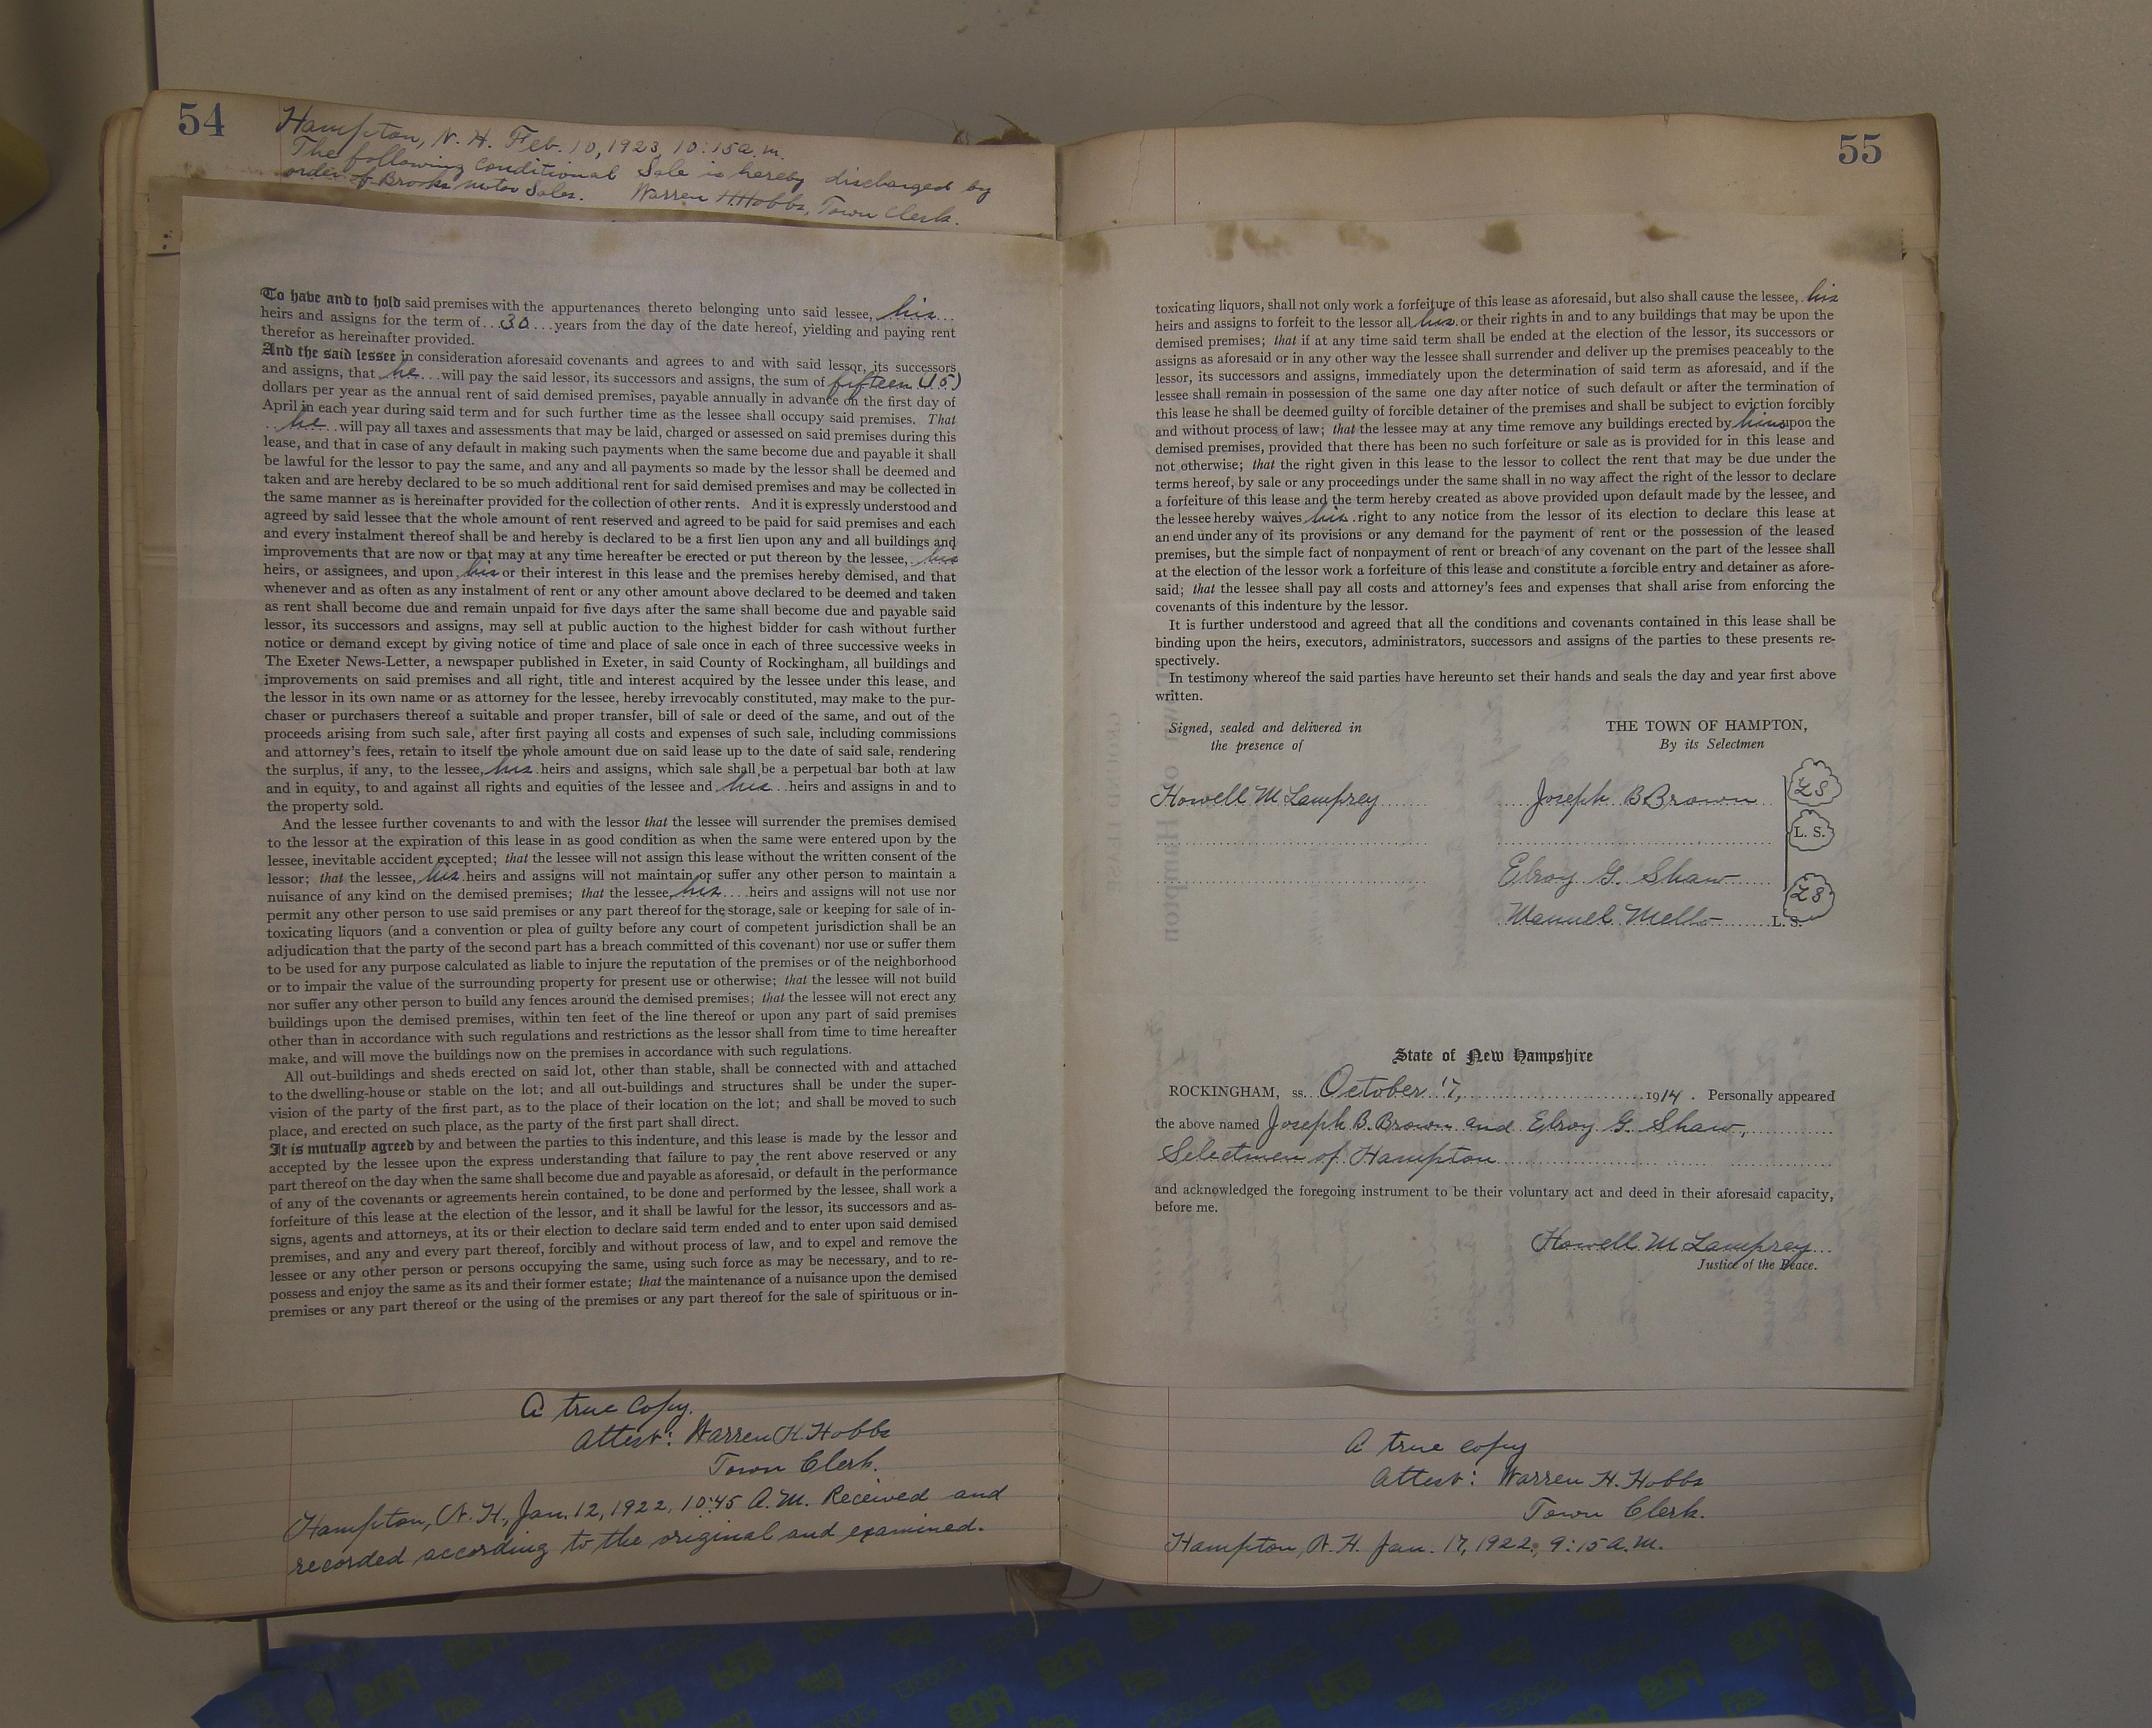 54
Hampton, N. H. Feb. 10, 1923, 10:15 a.m.
The following conditional Sale is hereby discharged by
order of Brooks Motor Sales. Warren H. Hobbs, Town Clerk.
To have and to hold said premises with the appurtenances thereto belonging unto said lessee, his
heirs and assigns for the term of 30 years from the day of the date hereof, yielding and paying rent
therefor as hereinafter provided.
And the said lessee in consideration aforesaid covenants and agrees to and with said lessor, its successors
and assigns, that he will pay the said lessor, its successors and assigns, the sum of fifteen (15)
dollars per year as the annual rent of said demised premises, payable annually in advance on the first day of
April in each year during said term and for such further time as the lessee shall occupy said premises. That
he will pay all taxes and assessments that may be laid, charged or assessed on said premises during this
lease, and that in case of any default in making such payments when the same become due and payable it shall
be lawful for the lessor to pay the same, and any and all payments so made by the lessor shall be deemed and
taken and are hereby declared to be so much additional rent for said demised premises and may be collected in
the same manner as is hereinafter provided for the collection of other rents. And it is expressly understood and
agreed by said lessee that the whole amount of rent reserved and agreed to be paid for said premises and each
and every instalment thereof shall be and hereby is declared to be a first lien upon any and all buildings and
improvements that are now or that may at any time hereafter be erected or put thereon by the lessee, his
heirs, or assignees, and upon his or their interest in this lease and the premises hereby demised, and that
whenever and as often as any instalment of rent or any other amount above declared to be deemed and taken
as rent shall become due and remain unpaid for five days after the same shall become due and payable said
lessor, its successors and assigns, may sell at public auction to the highest bidder for cash without further
notice or demand except by giving notice of time and place of sale once in each of three successive weeks in
The Exeter News-Letter, a newspaper published in Exeter, in said County of Rockingham, all buildings and
improvements on said premises and all right, title and interest acquired by the lessee under this lease, and
the lessor in its own name or as attorney for the lessee, hereby irrevocably constituted, may make to the pur-
chaser or purchasers thereof a suitable and proper transfer, bill of sale or deed of the same, and out of the
proceeds arising from such sale, after first paying all costs and expenses of such sale, including commissions
and attorney's fees, retain to itself the whole amount due on said lease up to the date of said sale, rendering
the surplus, if any, to the lessee, his heirs and assigns, which sale shall be a perpetual bar both at law
and in equity, to and against all rights and equities of the lessee and his heirs and assigns in and to
the property sold.
And the lessee further covenants to and with the lessor that the lessee will surrender the premises demised
to the lessor at the expiration of this lease in as good condition as when the same were entered upon by the
lessee, inevitable accident excepted; that the lessee will not assign this lease without the written consent of the
lessor; that the lessee, his heirs and assigns will not maintain or suffer any other person to maintain a
nuisance of any kind on the demised premises; that the lessee, his heirs and assigns will not use nor
permit any other person to use said premises or any part thereof for the storage, sale or keeping for sale of in-
toxicating liquors (and a convention or plea of guilty before any court of competent jurisdiction shall be an
adjudication that the party of the second part has a breach committed of this covenant) nor use or suffer them
to be used for any purpose calculated as liable to injure the reputation of the premises or of the neighborhood
or to impair the value of the surrounding property for present use or otherwise; that the lessee will not build
nor suffer any other person to build any fences around the demised premises; that the lessee will not erect any
buildings upon the demised premises, within ten feet of the line thereof or upon any part of said premises
other than in accordance with such regulations and restrictions as the lessor shall from time to time hereafter
make, and will move the buildings now on the premises in accordance with such regulations.
All out-buildings and sheds erected on said lot, other than stable, shall be connected with and attached
to the dwelling-house or stable on the lot; and all out-buildings and structures shall be under the super-
vision of the party of the first part, as to the place of their location on the lot; and shall be moved to such
place, and erected on such place, as the party of the first part shall direct.
It is mutually agreed by and between the parties to this indenture, and this lease is made by the lessor and
accepted by the lessee upon the express understanding that failure to pay the rent above reserved or any
part thereof on the day when the same shall become due and payable as aforesaid, or default in the performance
of any of the covenants or agreements herein contained, to be done and performed by the lessee, shall work a
forfeiture of this lease at the election of the lessor, and it shall be lawful for the lessor, its successors and as-
signs, agents and attorneys, at its or their election to declare said term ended and to enter upon said demised
premises, and any and every part thereof, forcibly and without process of law, and to expel and remove the
lessee or any other person or persons occupying the same, using such force as may be necessary, and to re-
possess and enjoy the same as its and their former estate; that the maintenance of a nuisance upon the demised
premises or any part thereof or the using of the premises or any part thereof for the sale of spirituous or in-
A true copy.
Attest: Warren H. Hobbs
Town Clerk.
Hampton, N. H., Jan. 12, 1922, 10:45 A.M. Received and
recorded according to the original and examined.
55
toxicating liquors, shall not only work a forfeiture of this lease as aforesaid, but also shall cause the lessee, his
heirs and assigns to forfeit to the lessor all his or their rights in and to any buildings that may be upon the
demised premises; that if at any time said term shall be ended at the election of the lessor, its successors or
assigns as aforesaid or in any other way the lessee shall surrender and deliver up the premises peaceably to the
lessor, its successors and assigns, immediately upon the determination of said term as aforesaid, and if the
lessee shall remain in possession of the same one day after notice of such default or after the termination of
this lease he shall be deemed guilty of forcible detainer of the premises and shall be subject to eviction forcibly
and without process of law; that the lessee may at any time remove any buildings erected by him upon the
demised premises, provided that there has been no such forfeiture or sale as is provided for in this lease and
not otherwise; that the right given in this lease to the lessor to collect the rent that may be due under the
terms hereof, by sale or any proceedings under the same shall in no way affect the right of the lessor to declare
a forfeiture of this lease and the term hereby created as above provided upon default made by the lessee, and
the lessee hereby waives his right to any notice from the lessor of its election to declare this lease at
an end under any of its provisions or any demand for the payment of rent or the possession of the leased
premises, but the simple fact of nonpayment of rent or breach of any covenant on the part of the lessee shall
at the election of the lessor work a forfeiture of this lease and constitute a forcible entry and detainer as afore-
said; that the lessee shall pay all costs and attorney's fees and expenses that shall arise from enforcing the
covenants of this indenture by the lessor.
It is further understood and agreed that all the conditions and covenants contained in this lease shall be
binding upon the heirs, executors, administrators, successors and assigns of the parties to these presents re-
spectively.
In testimony whereof the said parties have hereunto set their hands and seals the day and year first above
written.
Signed, sealed and delivered in
the presence of
THE TOWN OF HAMPTON,
By its Selectmen
Howell M Lamprey
Joseph B Brown L S
L. S.
Elroy G. Shaw L S
Manuel Mello L. S.
State of New Hampshire
ROCKINGHAM, ss. October 17, 1914. Personally appeared
the above named Joseph B. Brown and Elroy G. Shaw,
Selectmen of Hampton
and acknowledged the foregoing instrument to be their voluntary act and deed in their aforesaid capacity,
before me.
Howell M Lamprey
Justice of the Peace.
A true copy
Attest: Warren H. Hobbs
Town Clerk.
Hampton, N. H. Jan. 17, 1922, 9:15 a.m.